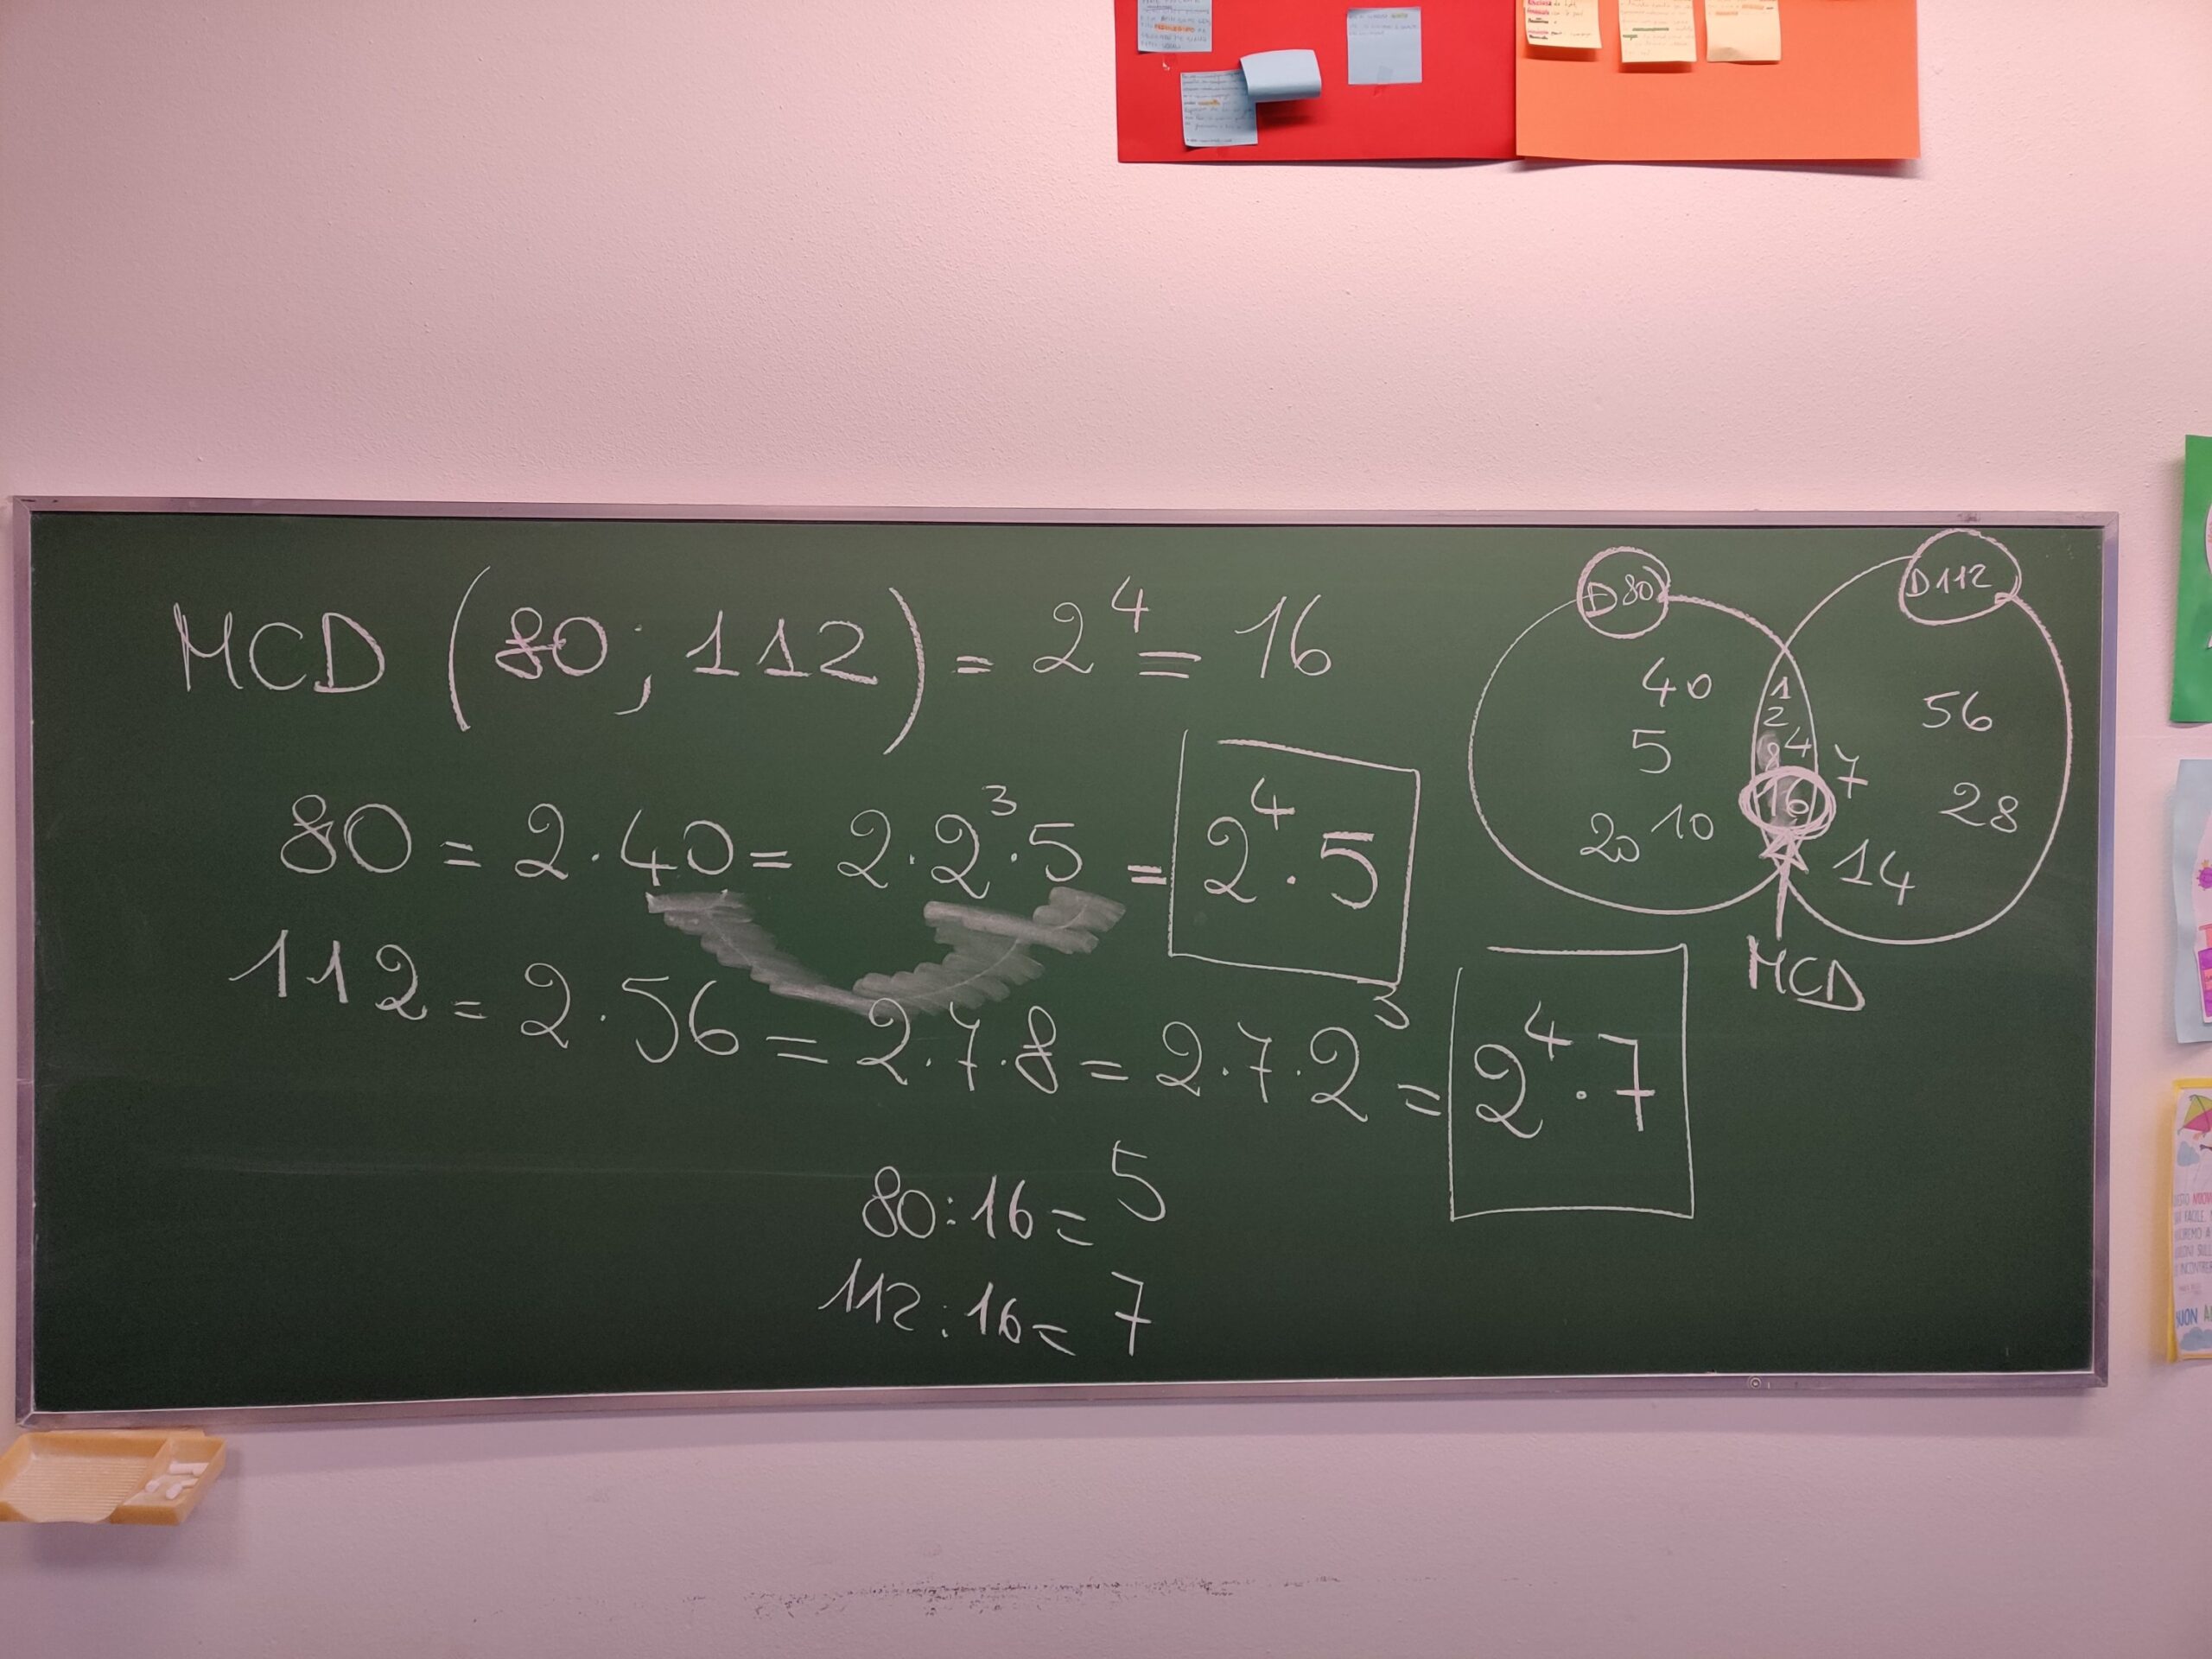 MCD (80; 112) = 2⁴ = 16
80 = 2·40 = 2·2³·5 = 2⁴·5
112 = 2·56 = 2·7·8 = 2·7·2³ = 2⁴·7
80:16= 5
112:16= 7
D80
D112
40
5
20 10
1
2
4
8
16
7
56
28
14
MCD
BUON